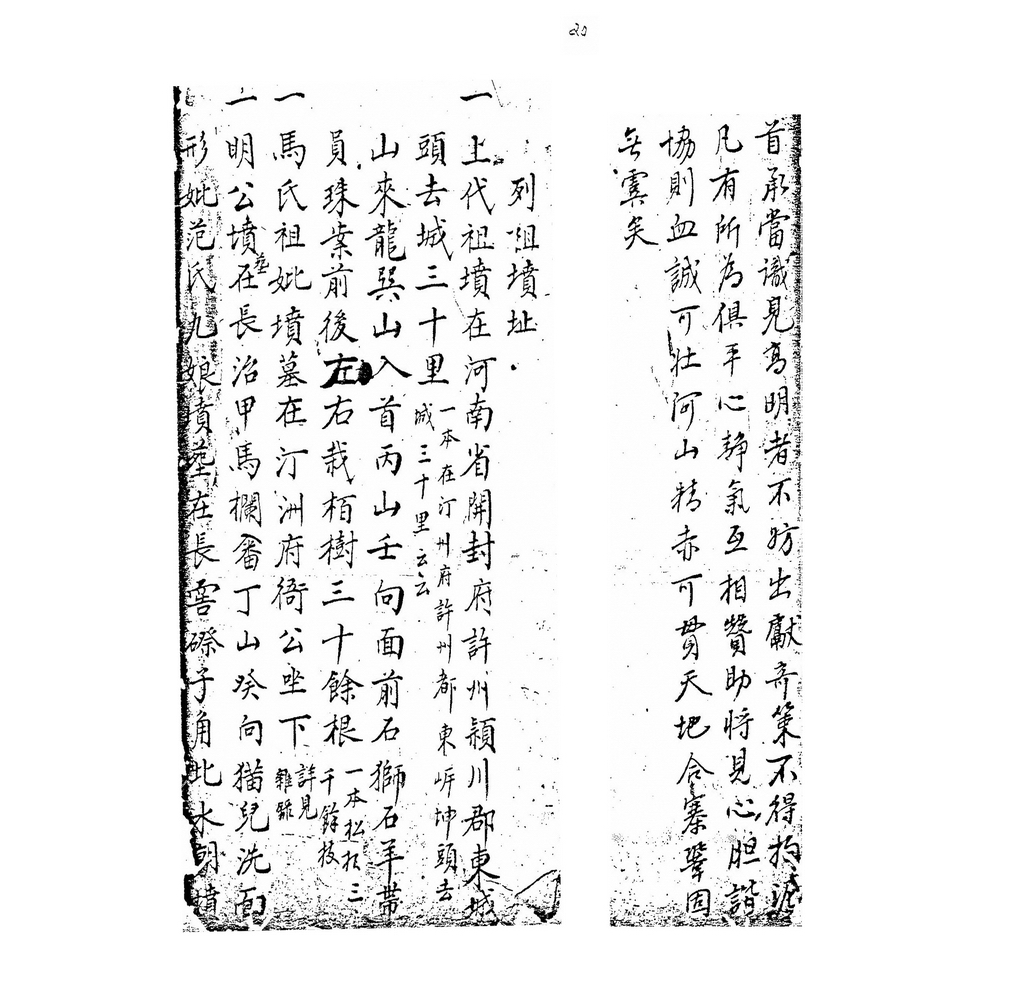 20
首承當識見高明者不妨出獻奇策不得拘泥
凡有所為俱平心靜氣互相贊助將見心胆諧
協則血誠可壯河山精赤可貫天地合寨鞏固
無虞矣
列祖墳址
一 上代祖墳在河南省開封府許州潁川郡東城
頭去城三十里
一本在汀州府許州都東岸坤頭去
城三十里云云
山來龍巽山入首丙山壬向面前石獅石羊帶
員珠案前後左右栽栢樹三十餘根
一本松杉三
千餘枝
一 馬氏祖妣墳墓在汀洲府衙公坐下
詳見
雜錄
一 明公墳塋在長治甲馬欄畬丁山癸向猫兒洗面
形妣范氏九娘墳塋在長窖磜子角北水朝墳